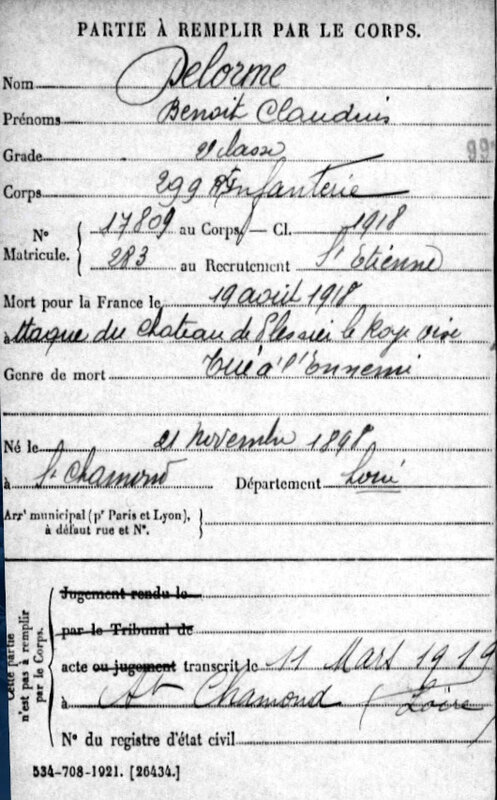 PARTIE À REMPLIR PAR LE CORPS.
Nom Delorme
Prénoms Benoit Claudius
Grade 2e classe
Corps 299 Rt Infanterie
N° Matricule. { 17809 au Corps. — Cl. 1918
283 au Recrutement St Étienne
Mort pour la France le 19 août 1918
à attaque du Chateau de Plessier le Roye Oise
Genre de mort Tué à l'Ennemi
Né le 21 Novembre 1898
à St Chamond Département Loire
Arrt municipal (pr Paris et Lyon), à défaut rue et N°.
Cette partie n'est pas à remplir par le Corps.
Jugement rendu le
par le Tribunal de
acte ou jugement transcrit le 11 Mars 1919
à St Chamond (Loire)
N° du registre d'état civil
534-708-1921. [26434.]